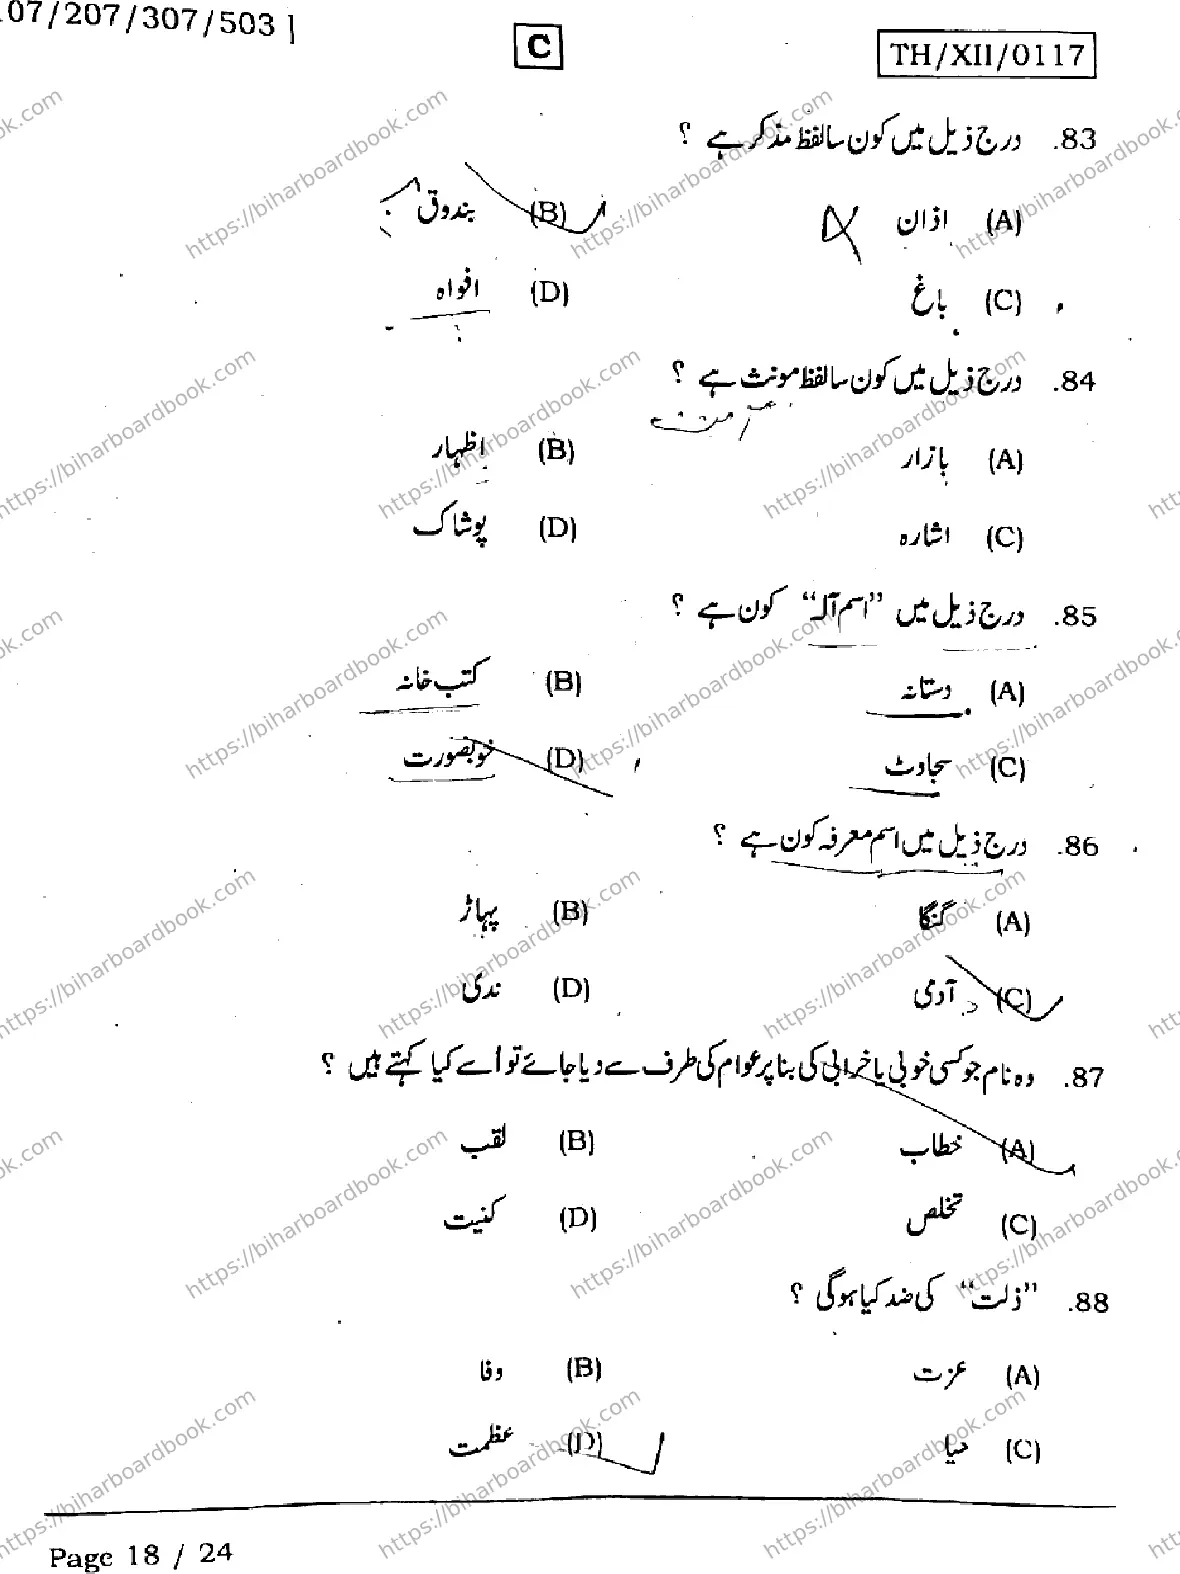 107/207/307/503 |
C
TH/XII/0117
83. درج ذیل میں کون سا لفظ مذکر ہے ؟
(A) اذان (B) بندوق
(C) باغ (D) افواہ
84. درج ذیل میں کون سا لفظ مونث ہے ؟
(A) بازار (B) اظہار
(C) اشارہ (D) پوشاک
85. درج ذیل میں ”اسم آلہ“ کون ہے ؟
(A) دستانہ (B) کتب خانہ
(C) سجاوٹ (D) خوبصورت
86. درج ذیل میں اسم معرفہ کون ہے ؟
(A) گنگا (B) پہاڑ
(C) آدمی (D) ندی
87. وہ نام جو کسی خوبی یا خرابی کی بنا پر عوام کی طرف سے دیا جائے تو اُسے کیا کہتے ہیں ؟
(A) خطاب (B) لقب
(C) تخلص (D) کنیت
88. ”ذلت“ کی ضد کیا ہوگی ؟
(A) عزت (B) وفا
(C) حیا (D) عظمت
Page 18 / 24
https://biharboardbook.com